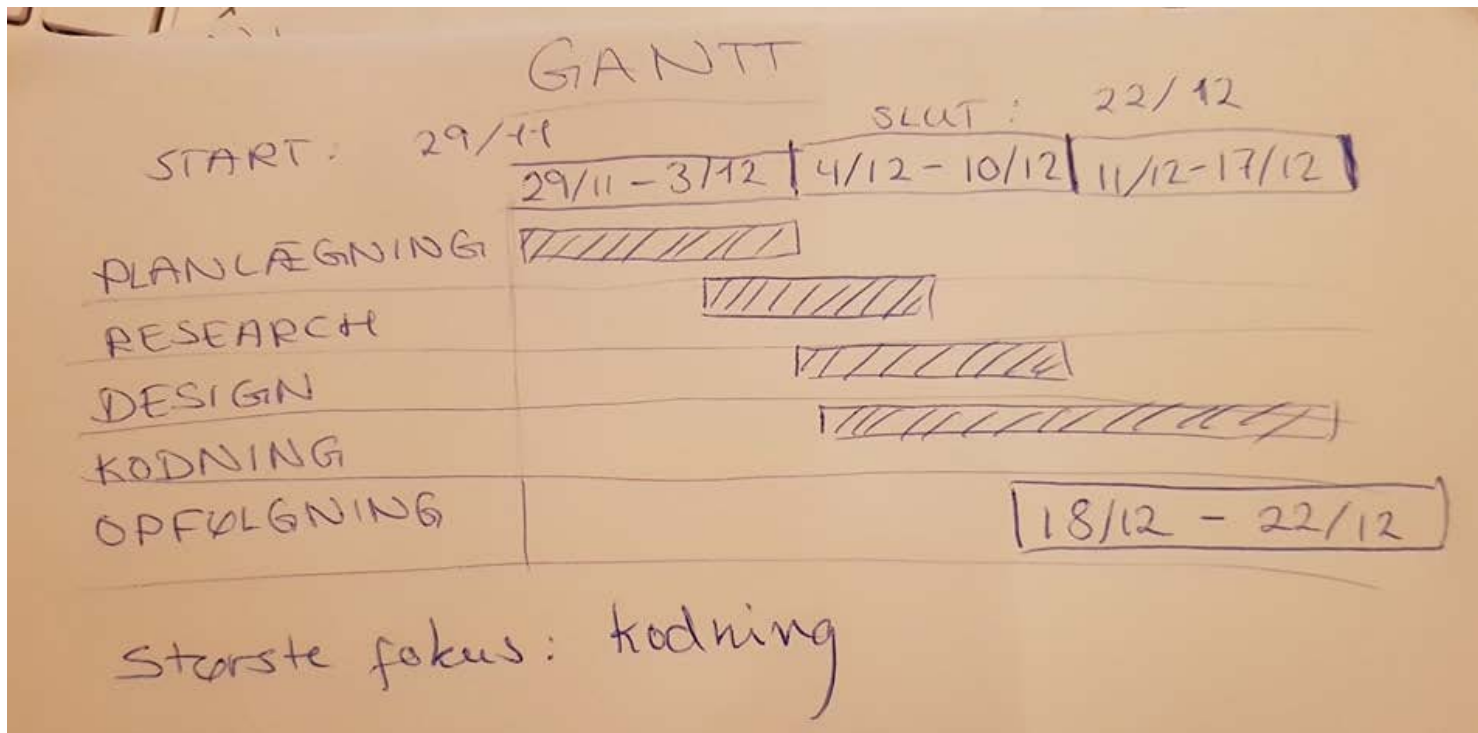 GANTT
START: 29/11 SLUT: 22/12
29/11 - 3/12 4/12 - 10/12 11/12-17/12
PLANLÆGNING
RESEARCH
DESIGN
KODNING
OPFØLGNING 18/12 - 22/12
Største fokus: kodning